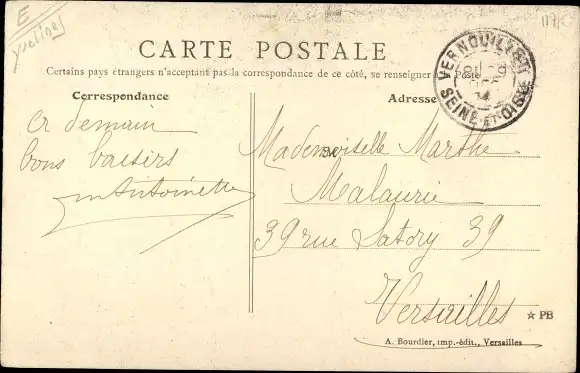 E
Yvelines
CARTE POSTALE
Certains pays étrangers n'acceptant pas la correspondance de ce côté, se renseigner Poste
Correspondance
Adresse
VERNOUILLET
SEINE-ET-OISE
a demain
bons baisers
Antoinette
Mademoiselle Marthe
Malaurie
39 rue Satory 39
Versailles
☆ PB
A. Bourdier, imp.-édit., Versailles